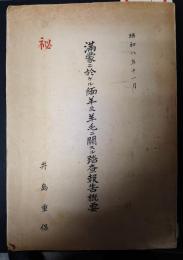 昭和八年十一月
秘
満蒙ニ於ケル緬羊及羊毛ニ関スル踏査報告概要
井島重保